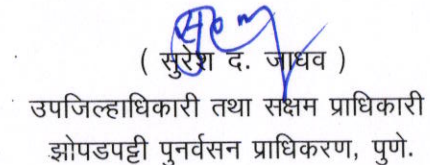 ( सुरेश द. जाधव )
उपजिल्हाधिकारी तथा सक्षम प्राधिकारी
झोपडपट्टी पुनर्वसन प्राधिकरण, पुणे.